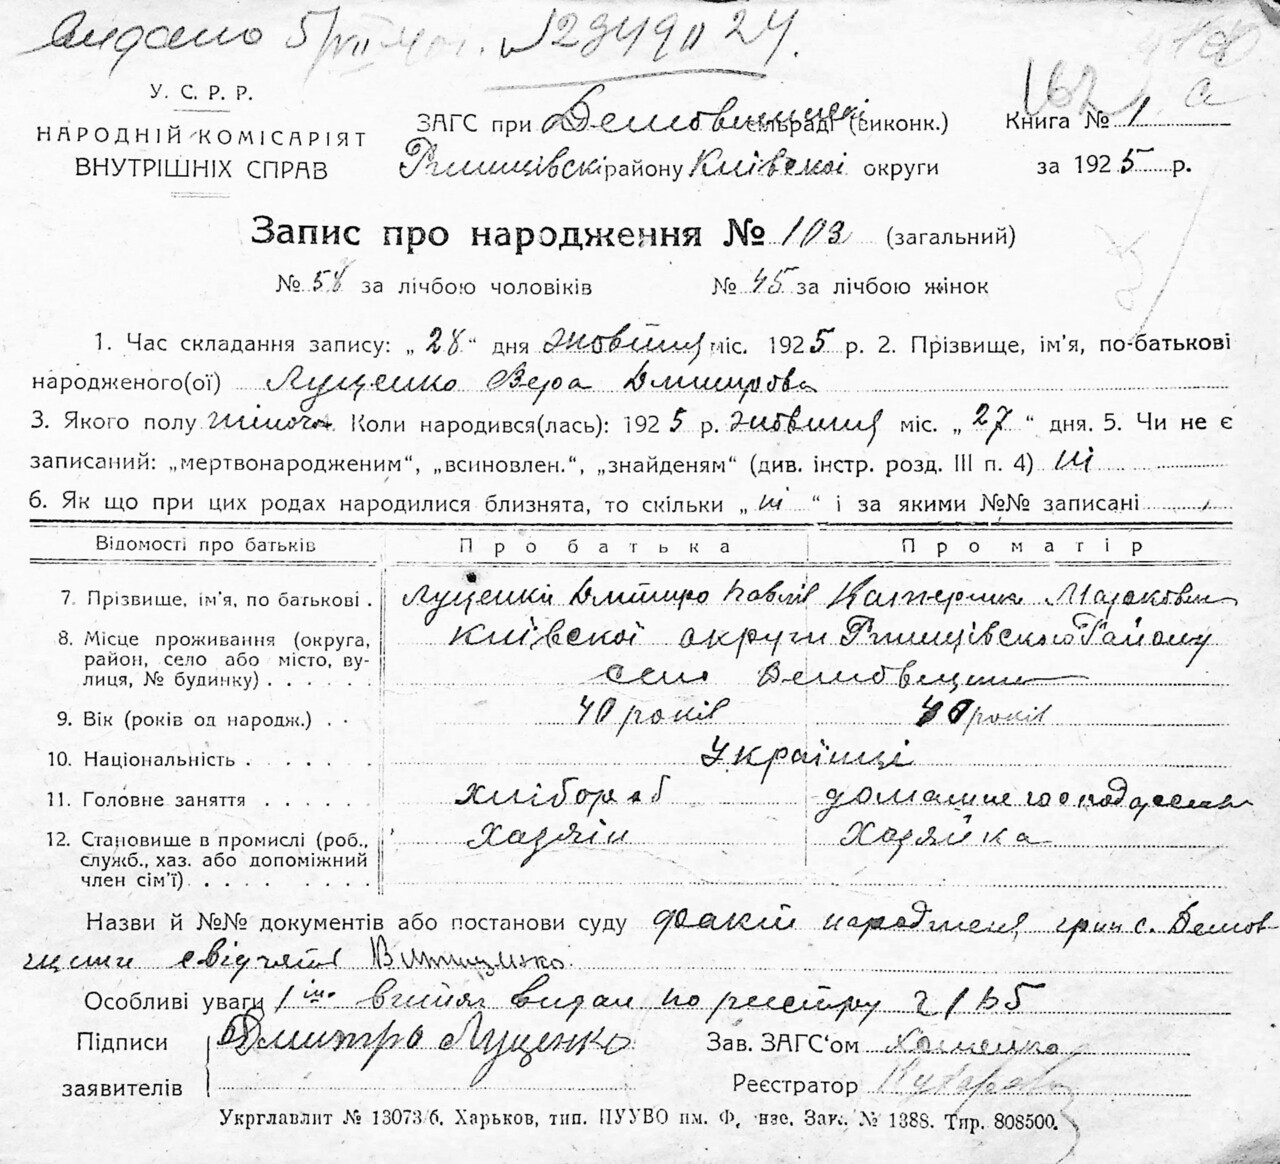 Видано 5/VII 
У. С. Р. Р.
НАРОДНІЙ КОМІСАРІЯТ
ВНУТРІШНІХ СПРАВ
ЗАГС при сільраді (виконк.)
району Київської округи
Книга № 1
за 1925 р.
162 а
Запис про народження № 103 (загальний)
№ 58 за лічбою чоловіків № 45 за лічбою жінок
1. Час складання запису: „ 28 “ дня жовтня міс. 1925 р. 2. Прізвище, ім'я, по-батькові
народженого(ої) Луценко Вера Дмитрова
3. Якого полу жіноч. Коли народився(лась): 1925 р. жовтня міс. „ 27 “ дня. 5. Чи не є
записаний: „мертвонародженим“, „всиновлен.“, „знайденям“ (див. інстр. розд. III п. 4) ні
6. Як що при цих родах народилися близнята, то скільки „ ні “ і за якими №№ записані
Відомості про батьків Про батька Про матір
7. Прізвище, ім'я, по батькові . Луценко Дмитро Павлів Катерина Марковна
8. Місце проживання (округа, Київської округи Ржищівского Району
район, село або місто, ву- село
лиця, № будинку) . . . . .
9. Вік (років од народж.) . . 40 років 40 років
10. Національність . . . . . . Українці
11. Головне заняття . . . . . хлібороб домашне господарство
12. Становище в промислі (роб., хазяін хазяйка
служб., хаз. або допоміжний
член сім'ї) . . . . . . . .
Назви й №№ документів або постанови суду факт народження гр-н с.
свідчять
Особливі уваги 1 витяг видан по реєстру
Підписи Дмитро Луценко Зав. ЗАГС'ом
заявителів Реєстратор
Укрглавлит № 13073/б. Харьков, тип. ПУУВО им. Ф. нзе. Зак. № 1388. Тир. 808500.